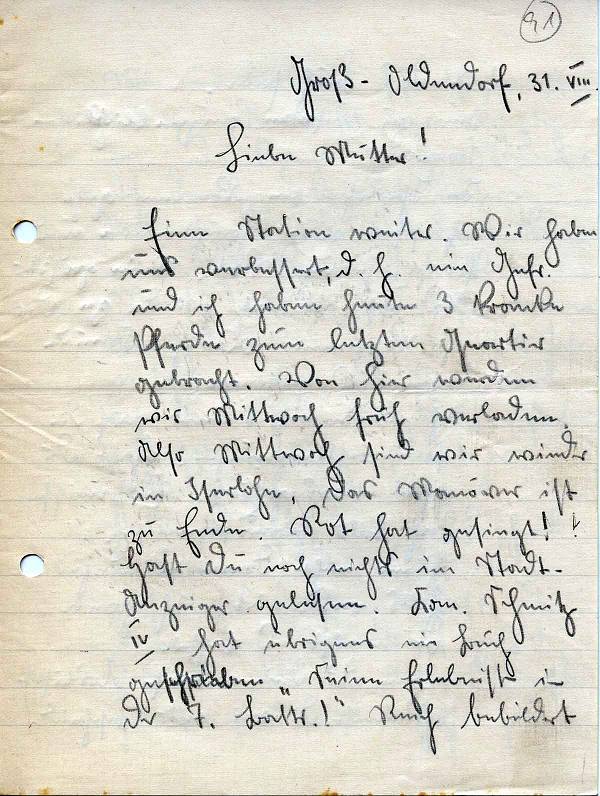 91
Groß-Oldendorf, 31. VIII.
Liebe Mutter!
Eine Station weiter. Wir haben
uns verbessert, d. h. ein Gefr.
und ich haben heute 3 kranke
Pferde zum letzten Quartier
gebracht. Von hier werden
wir Mittwoch früh verladen.
Also Mittwoch sind wir wieder
in Iserlohn. Das Manöver ist
zu Ende. Rot hat gesiegt!
Hast Du noch nichts im Stadt-
Anzeiger gelesen. Kam. Schmitz
IV hat übrigens ein Buch
geschrieben „Seine Erlebnisse in
der 7. Battr.!" Reich bebildert